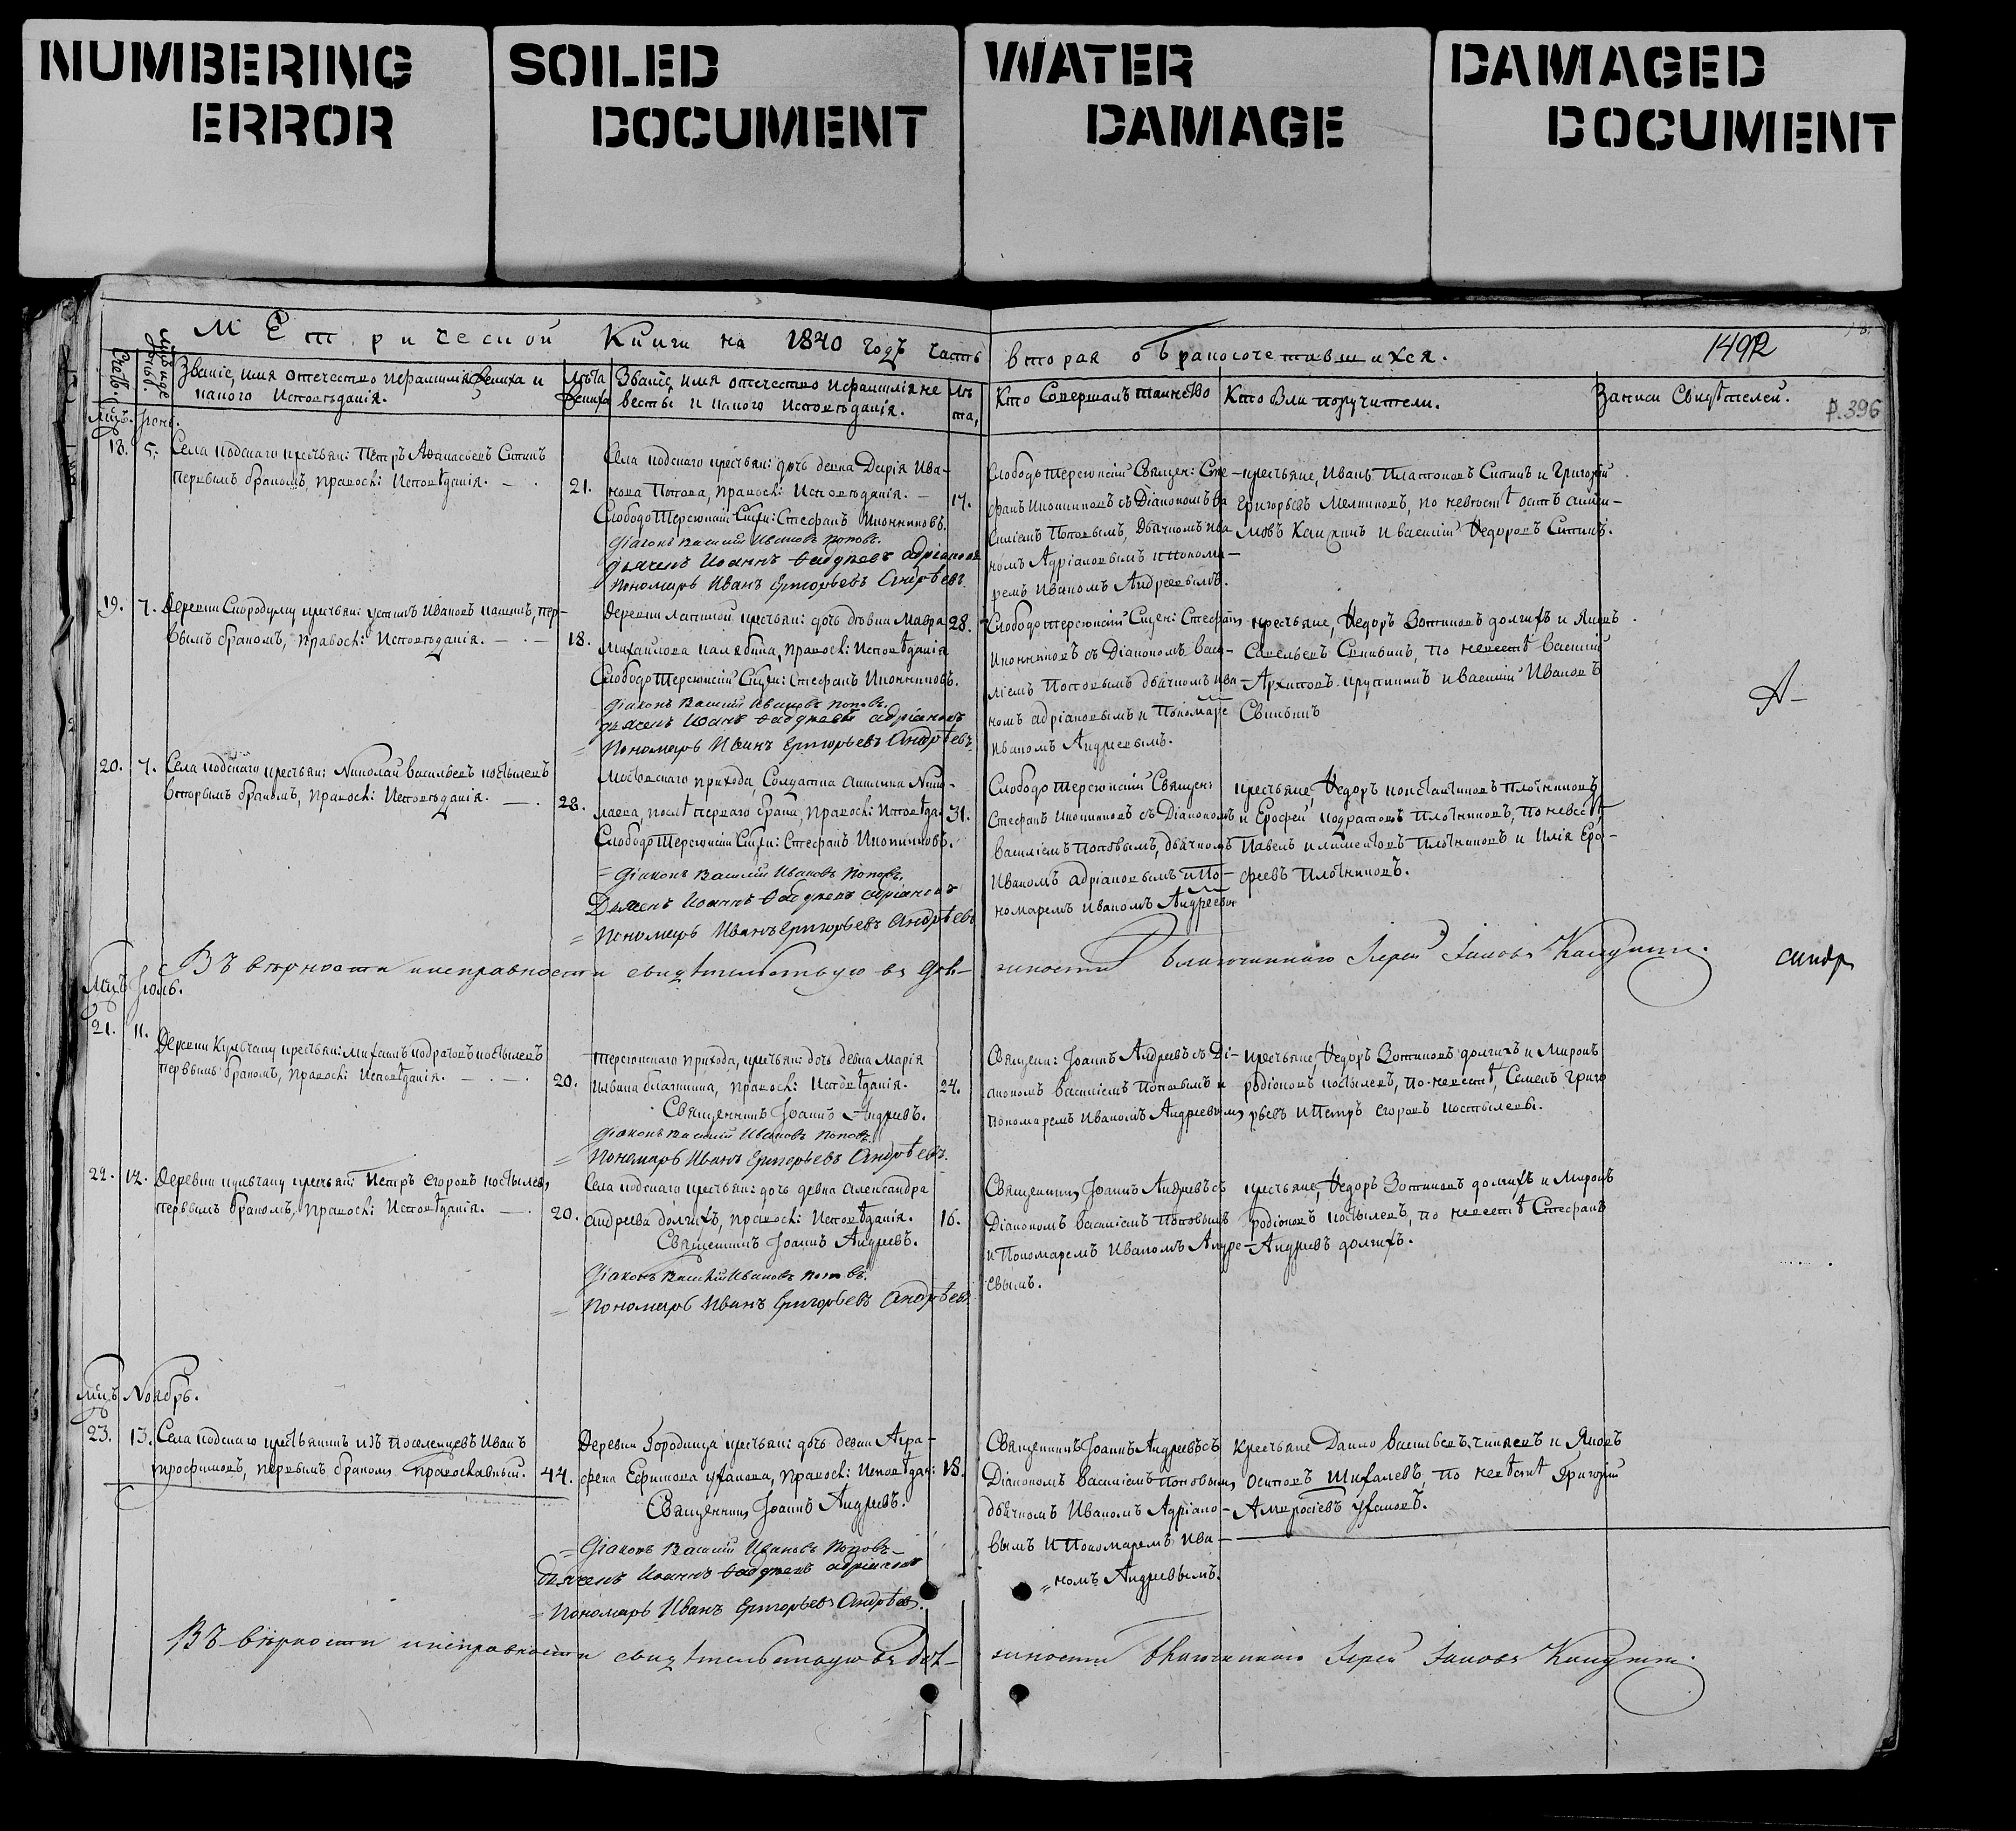 NUMBERING
ERROR
SOILED
DOCUMENT
WATER
DAMAGE
DAMAGED
DOCUMENT
Метрической Книги на 1840 годъ часть
вторая о бракосочетавшихся.
1492
Р.396
Званіе, имя отечество и фамилія жениха и
какого Исповѣданія.
Лѣта
жениха
Званіе имя отечество и фамилія не
весты и какого Исповѣданія.
Лѣ
та,
Кто Совершалъ таинство
Кто были поручители.
Записи Свидѣтелей.
18. 5. Села кодскаго крестьян: Петръ Афанасьевъ Ситинъ
первымъ бракомъ, правосл: Исповѣданія.
21.
Села кодскаго крестьян: дочь девка Дарія Ива-
нова Попова, правосл: Исповѣданія.
17.
СлободоТерсюкскій Сщен: Стефанъ Иконниковъ.
Діаконъ Василій Ивановъ Поповъ.
Дьячекъ Иоаннъ Фаддеевъ Адріановъ
Пономарь Иванъ Григорьевъ Андрѣевъ
СлободоТерсюкскій Священ: Сте-
фанъ Иконниковъ съ Діакономъ Ва
силіемъ Поповымъ, Дьячкомъ Ива
номъ Адріановымъ и понома-
ремъ Иваномъ Андреевымъ.
крестьяне, Иванъ Платоновъ Ситинъ и Григорій
Григорьевъ Мелниковъ, по невестѣ
и василій Федоровъ Ситинъ.
19. 7. Деревни крестьян: Ивановъ пер-
вымъ бракомъ, правосл: Исповѣданія.
18.
Деревни крестьян: дочь дѣвка Мавра
28.
Михайлова калябина, правосл: Исповѣданія
СлободоТерсюкскій Сщен: Стефанъ Иконниковъ.
Діаконъ Василій Ивановъ Поповъ.
Дьячекъ Иоаннъ Фаддеевъ Адріановъ
Пономарь Иванъ Григорьевъ Андрѣевъ
СлободоТерсюкскій Сщен: Стефанъ
Иконниковъ съ Діакономъ Васи-
ліемъ Поповымъ дьячкомъ Ива
номъ адріановымъ и Пономаре
Иваномъ Андреевымъ.
крестьяне, Федоръ Зотиковъ долгихъ и Яковъ
Савельевъ Свинбинъ, по невестѣ Василій
Архиповъ и Василій Ивановъ
Свинбинъ
20. 7. Села кодскаго крестьян: Николай васильевъ костылевъ
вторымъ бракомъ, правосл: Исповѣданія.
28.
прихода, Солдатка Акилина Нико-
лаева, послѣ перваго брака, правосл: Исповѣдан
31.
СлободоТерсюкскій Сщен: Стефанъ Иконниковъ.
Діаконъ Василій Ивановъ Поповъ.
Дьячекъ Иоаннъ Фаддеевъ Адріановъ
Пономарь Иванъ Григорьевъ Андрѣевъ
СлободоТерсюкскій Священ:
Стефанъ Иконниковъ съ Діакономъ
василіемъ Поповымъ, дьячкомъ
Иваномъ адріановымъ и По-
номаремъ Иваномъ Андреевы
крестьяне, Федоръ константиновъ Плотниковъ
и Ерофей кодратовъ Плотниковъ, по невестѣ
Павелъ климентовъ Плотниковъ и Илія Еро-
феевъ Плотниковъ.
Въ вѣрности и исправности свидѣтельствую въ дол-
жности Благочиннаго Іерей Іаковъ
Мцъ Іюль.
21. 11.
Деревни крестьян: Михаилъ кодратовъ костылевъ
первымъ бракомъ, правосл: Исповѣданія.
20.
Терсюкскаго прихода, крестьян: дочь девка Марія
правосл: Исповѣданія.
24.
Священникъ Іоаннъ Андреевъ.
Діаконъ Василій Ивановъ Поповъ.
Пономарь Иванъ Григорьевъ Андрѣевъ.
Священ: Іоаннъ Андреевъ съ Ді-
акономъ Василіемъ Поповымъ и
Пономаремъ Иваномъ Андреевымъ
крестьяне, Федоръ Зотиковъ долгихъ и Миронъ
родіоновъ костылевъ, по невестѣ, Семенъ Григо
рьевъ и Петръ егоровъ костылевы.
22. 12. Деревни крестьян: Петръ егоровъ костылевъ
первымъ бракомъ, правосл: Исповѣданія.
20.
Села кодскаго крестьян: дочь девка Александра
андреева долгихъ, правосл: Исповѣданія.
16.
Священникъ Іоаннъ Андреевъ.
Діаконъ Василій Ивановъ Поповъ.
Пономарь Иванъ Григорьевъ Андрѣевъ
Священникъ Іоаннъ Андреевъ съ
Діакономъ Василіемъ Поповымъ
и Пономаремъ Иваномъ Андре-
евымъ.
крестьяне, Федоръ Зотиковъ долгихъ и Миронъ
родіоновъ костылевъ, по невестѣ Стефанъ
Андреевъ долгихъ.
Мцъ Ноябрь.
23. 13. Села кодскаго крестьянинъ изъ поселенцевъ Иванъ
трофимовъ, первымъ бракомъ православный.
44.
Деревни Бородина крестьян: дочь девка Агра-
фена Ефимова ужакова, правосл: Исповѣдан:
18.
Священникъ Іоаннъ Андреевъ.
Діаконъ Василій Ивановъ Поповъ
Дьячекъ Иоаннъ Фаддеевъ адріановъ
Пономарь Иванъ Григорьевъ Андрѣевъ.
Священникъ Іоаннъ Андреевъ съ
Діакономъ Василіемъ Поповымъ
дьячкомъ Иваномъ Адріано-
вымъ и Пономаремъ Ива-
номъ Андреевымъ.
Крестьяне Данило Васильевъ и Яковъ
Осиповъ по невѣстѣ Григорій
Амвросіевъ ужаковъ.
Въ вѣрности и исправности свидѣтельствую въ дол-
жности Благочиннаго Іерей Іаковъ